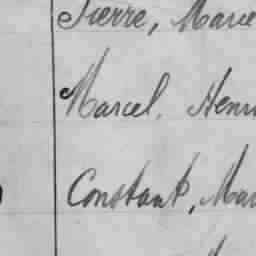 Pierre, Marie
Marcel, Henri
Constant, Mar